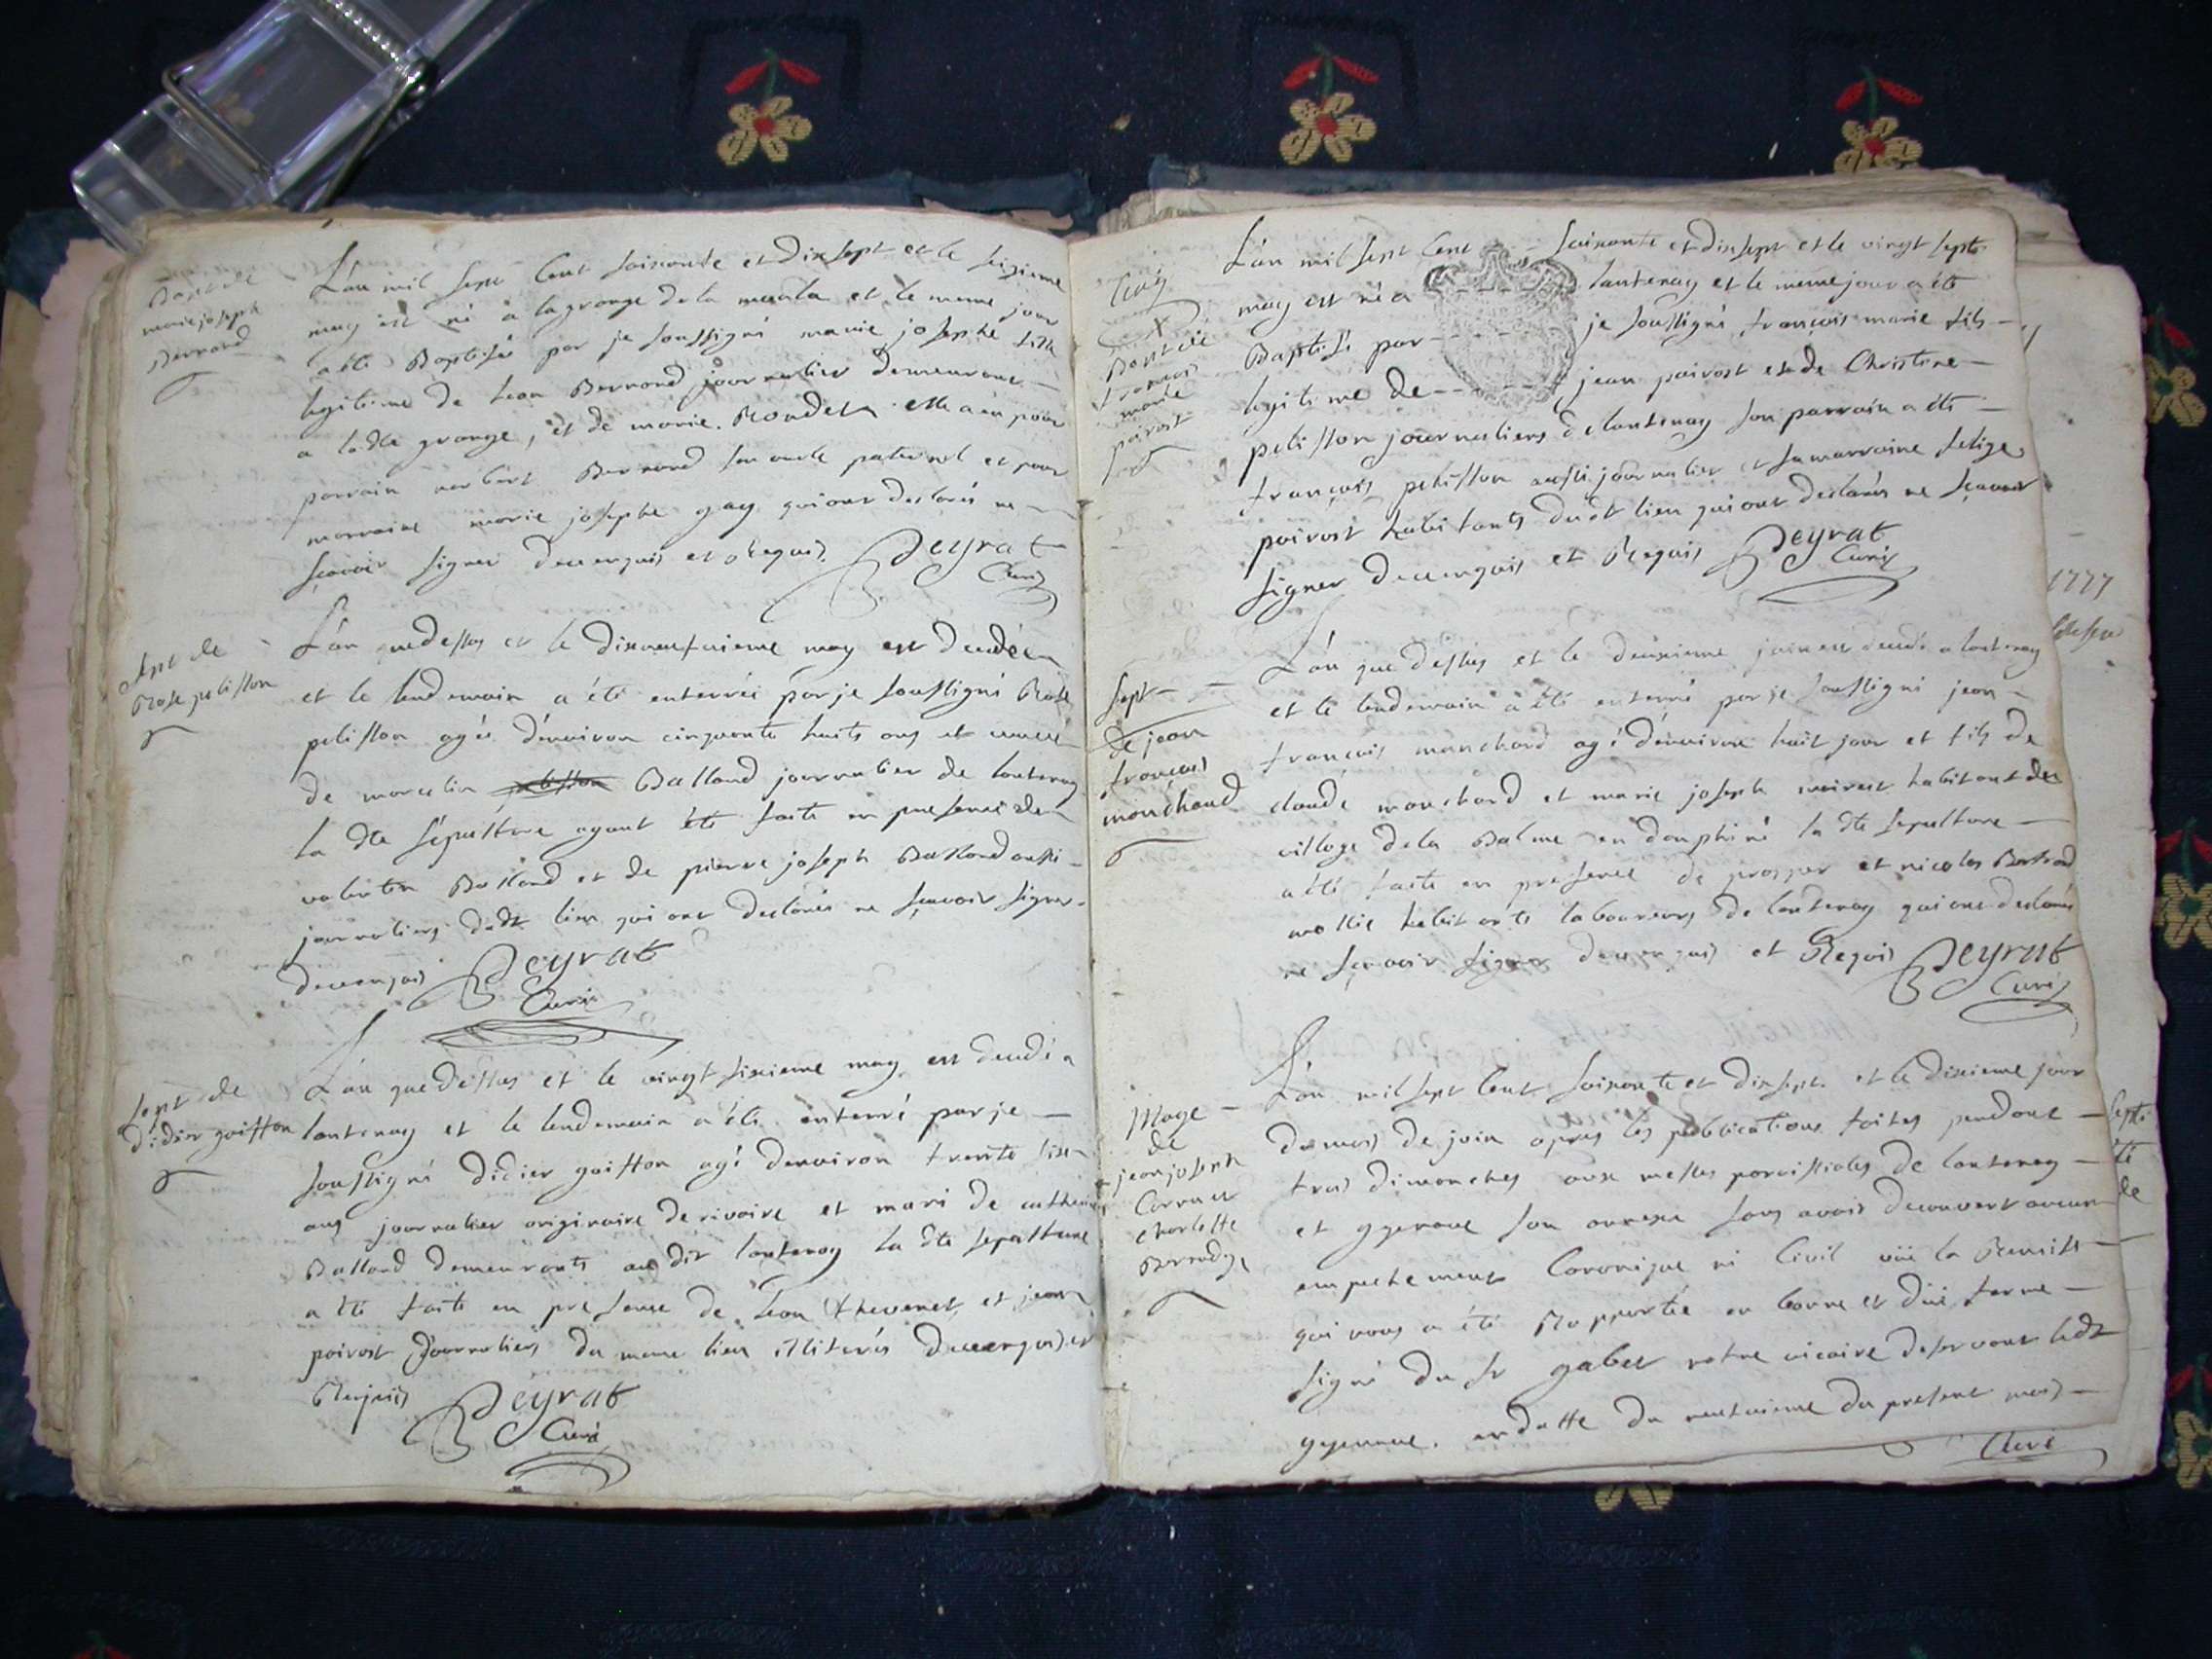 Bapt de
marie joseph
Bernard
L'an mil sept Cent soixante et Dix sept et le seizieme
may est né a la grange de la manla et le meme jour
a été Baptisée par je soussigné marie josephe fille
legitime de Leon Bernard journalier demeurant
a ladte grange, et de marie Rondet elle a eu pour
parrain norbert Bernard son oncle paternel et pour
marraine marie josephe gay qui ont declarés ne
sçavoir signer de ce enquis et Requis. Peyrat
Curé
Sept de
Rose pelisson
L'an que dessus et le Dixneufvieme may est decédée
et le lendemain a été enterrée par je soussigné Rose
pelisson agée d'environ cinquante huits ans et veuve
de marcelin pelisson Balland journalier de lantenay
la dte sépulture ayant été faite en presence de
valentin Balland et de pierre joseph Balland aussi
journaliers dudt lieu qui ont declarés ne sçavoir signer
de ce enquis Peyrat
Curé
Sept de
Didier goiffon
L'an que dessus et le vingt sixieme may est decedé a
lantenay et le lendemain a été enterré par je
soussigné Didier goiffon agé d'environ trente six
ans journalier originaire de rivoire et mari de catherine
Balland demeurants audit lantenay la dte sepulture
a été faite en presence de Leon thevenet et jean
poivost Journaliers du meme lieu illiterés de ce enquis et
Requis Peyrat
Curé
Cinq
Bapt de
françois
marie
poivost
L'an mil sept Cent soixante et dix sept et le vingt sept
may est né a lantenay et le meme jour a été
Baptisé par je soussigné françois marie fils
legitime de jean poivost et de Christine
pelisson journaliers de lantenay son parrain a été
françois pelisson aussi journalier et sa marraine felize
poivost habitants dudt lieu qui ont declarés ne sçavoir
signer de ce enquis et Requis Peyrat
Curé
1777
Sept
de jean
françois
monchard
L'an que dessus et le deuxieme juin est decedé a lantenay
et le lendemain a été enterré par je soussigné jean
françois monchard agé d'environ huit jour et fils de
claude monchard et marie joseph habitant du
village de la Balme en dauphiné la dte sepulture
a été faite en presence de prosper et nicolas Bertrand
habitants laboureurs de lantenay qui ont declarés
ne sçavoir signer de ce enquis et Requis Peyrat
Curé
Mage
de
jean joseph
Carrier
charlotte
Berrodze
L'an mil sept Cent soixante et dix sept et le dixieme jour
du mois de juin apres les publications faites pendant
trois dimanches aux messes paroissiales de lantenay
et gyenoue son annexe sans avoir decouvert aucun
empechement Canonique ni Civil vüe la Remise
qui nous a été Rapportée en bonne et due forme
signé du sr gabet notre vicaire desservant ledt
gyenoue en datte du neufvieme du present mois
Curé